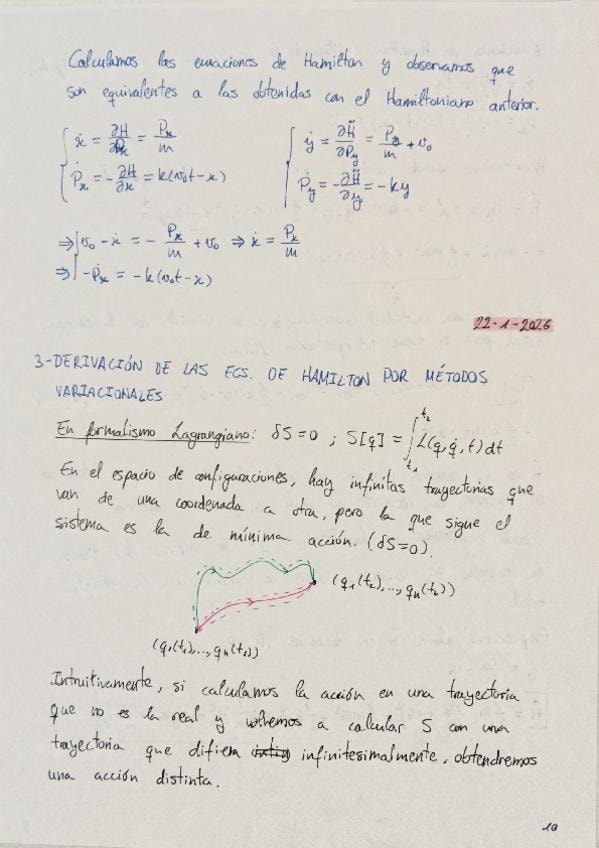 Calculamos las ecuaciones de Hamilton y observamos que
son equivalentes a las obtenidas con el Hamiltoniano anterior.
ẋ = ∂H/∂Pₓ = Pₓ/m
Ṗₓ = -∂H/∂x = k(v₀t-x)
ẏ = ∂H̃/∂P_y = P_y/m + v₀
Ṗ_y = -∂H̃/∂y = -ky
⇒ v₀ - ẋ = - Pₓ/m + v₀ ⇒ ẋ = Pₓ/m
⇒ -Ṗₓ = -k(v₀t-x)
22-1-2026
3-DERIVACIÓN DE LAS ECS. DE HAMILTON POR MÉTODOS
VARIACIONALES
En formalismo Lagrangiano: δS=0 ; S[q] = ∫_{t₁}^{t₂} L(q,q̇,t)dt
En el espacio de configuraciones, hay infinitas trayectorias que
van de una coordenada a otra, pero la que sigue el
sistema es la de mínima acción. (δS=0).
(q₁(t₂),...,qₙ(t₂))
(q₁(t₁),...,qₙ(t₁))
Intuitivamente, si calculamos la acción en una trayectoria
que no es la real y volvemos a calcular S con una
trayectoria que difiera infinitesimalmente, obtendremos
una acción distinta.
10